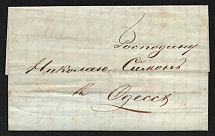 Господину
Николаю Симонъ
въ Одессѣ